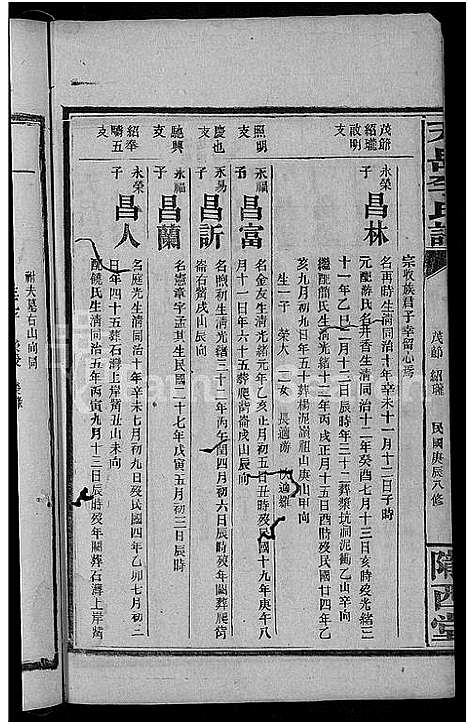 天岳李氏譜
茂節 紹瓏 民國庚辰八修
隴西堂
宗收族君子幸留心焉
茂節
紹瓏
政明
支
永榮
子
昌林
名再時生清同治十年辛未十一月十二日子時
元配薛氏名井香生清同治十二年癸酉七月十三日亥時歿光緒三
十一年乙巳一月十三日辰時年三十二葬漿坑洞泥衝乙山辛向
繼配簡氏生清光緒十二年丙戌正月十五日酉時歿民國廿四年乙
亥九月初九日辰時年五十葬楊泥嶺祖山庚山甲向
生一子 榮大 二女 長適
照明
支
永福
子
昌富
名金友生清光緒元年乙亥正月初五日丑時歿民國十九年庚午八
月十一日年六十五葬爬荷崙戌山辰向
慶也
支
永易
子
昌訢
名煦初生清光緒三十二年丙午閏四月初六日辰時歿年闕葬爬荷
崙右窩戌山辰向
聽興
支
永福
子
昌蘭
名憲章字孟其生民國二十七年戊寅五月初三日辰時
紹奉
疇五
支
永榮
子
昌人
名庭光生清同治十年辛未七月初九日歿民國四年乙卯七月初二
日年四十五葬石灣上岸窩丑山未向
配饒氏生清同治五年丙寅九月十三日辰時歿年闕葬石灣上岸窩
祔夫墓右山向同